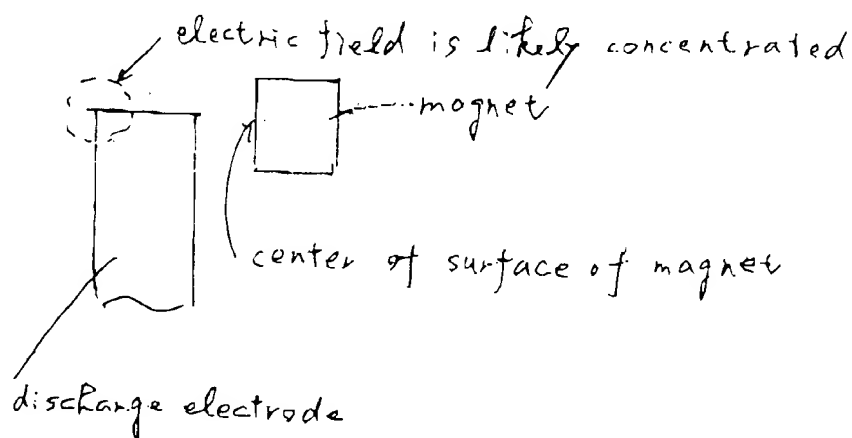 electric field is likely concentrated
magnet
center of surface of magnet
discharge electrode